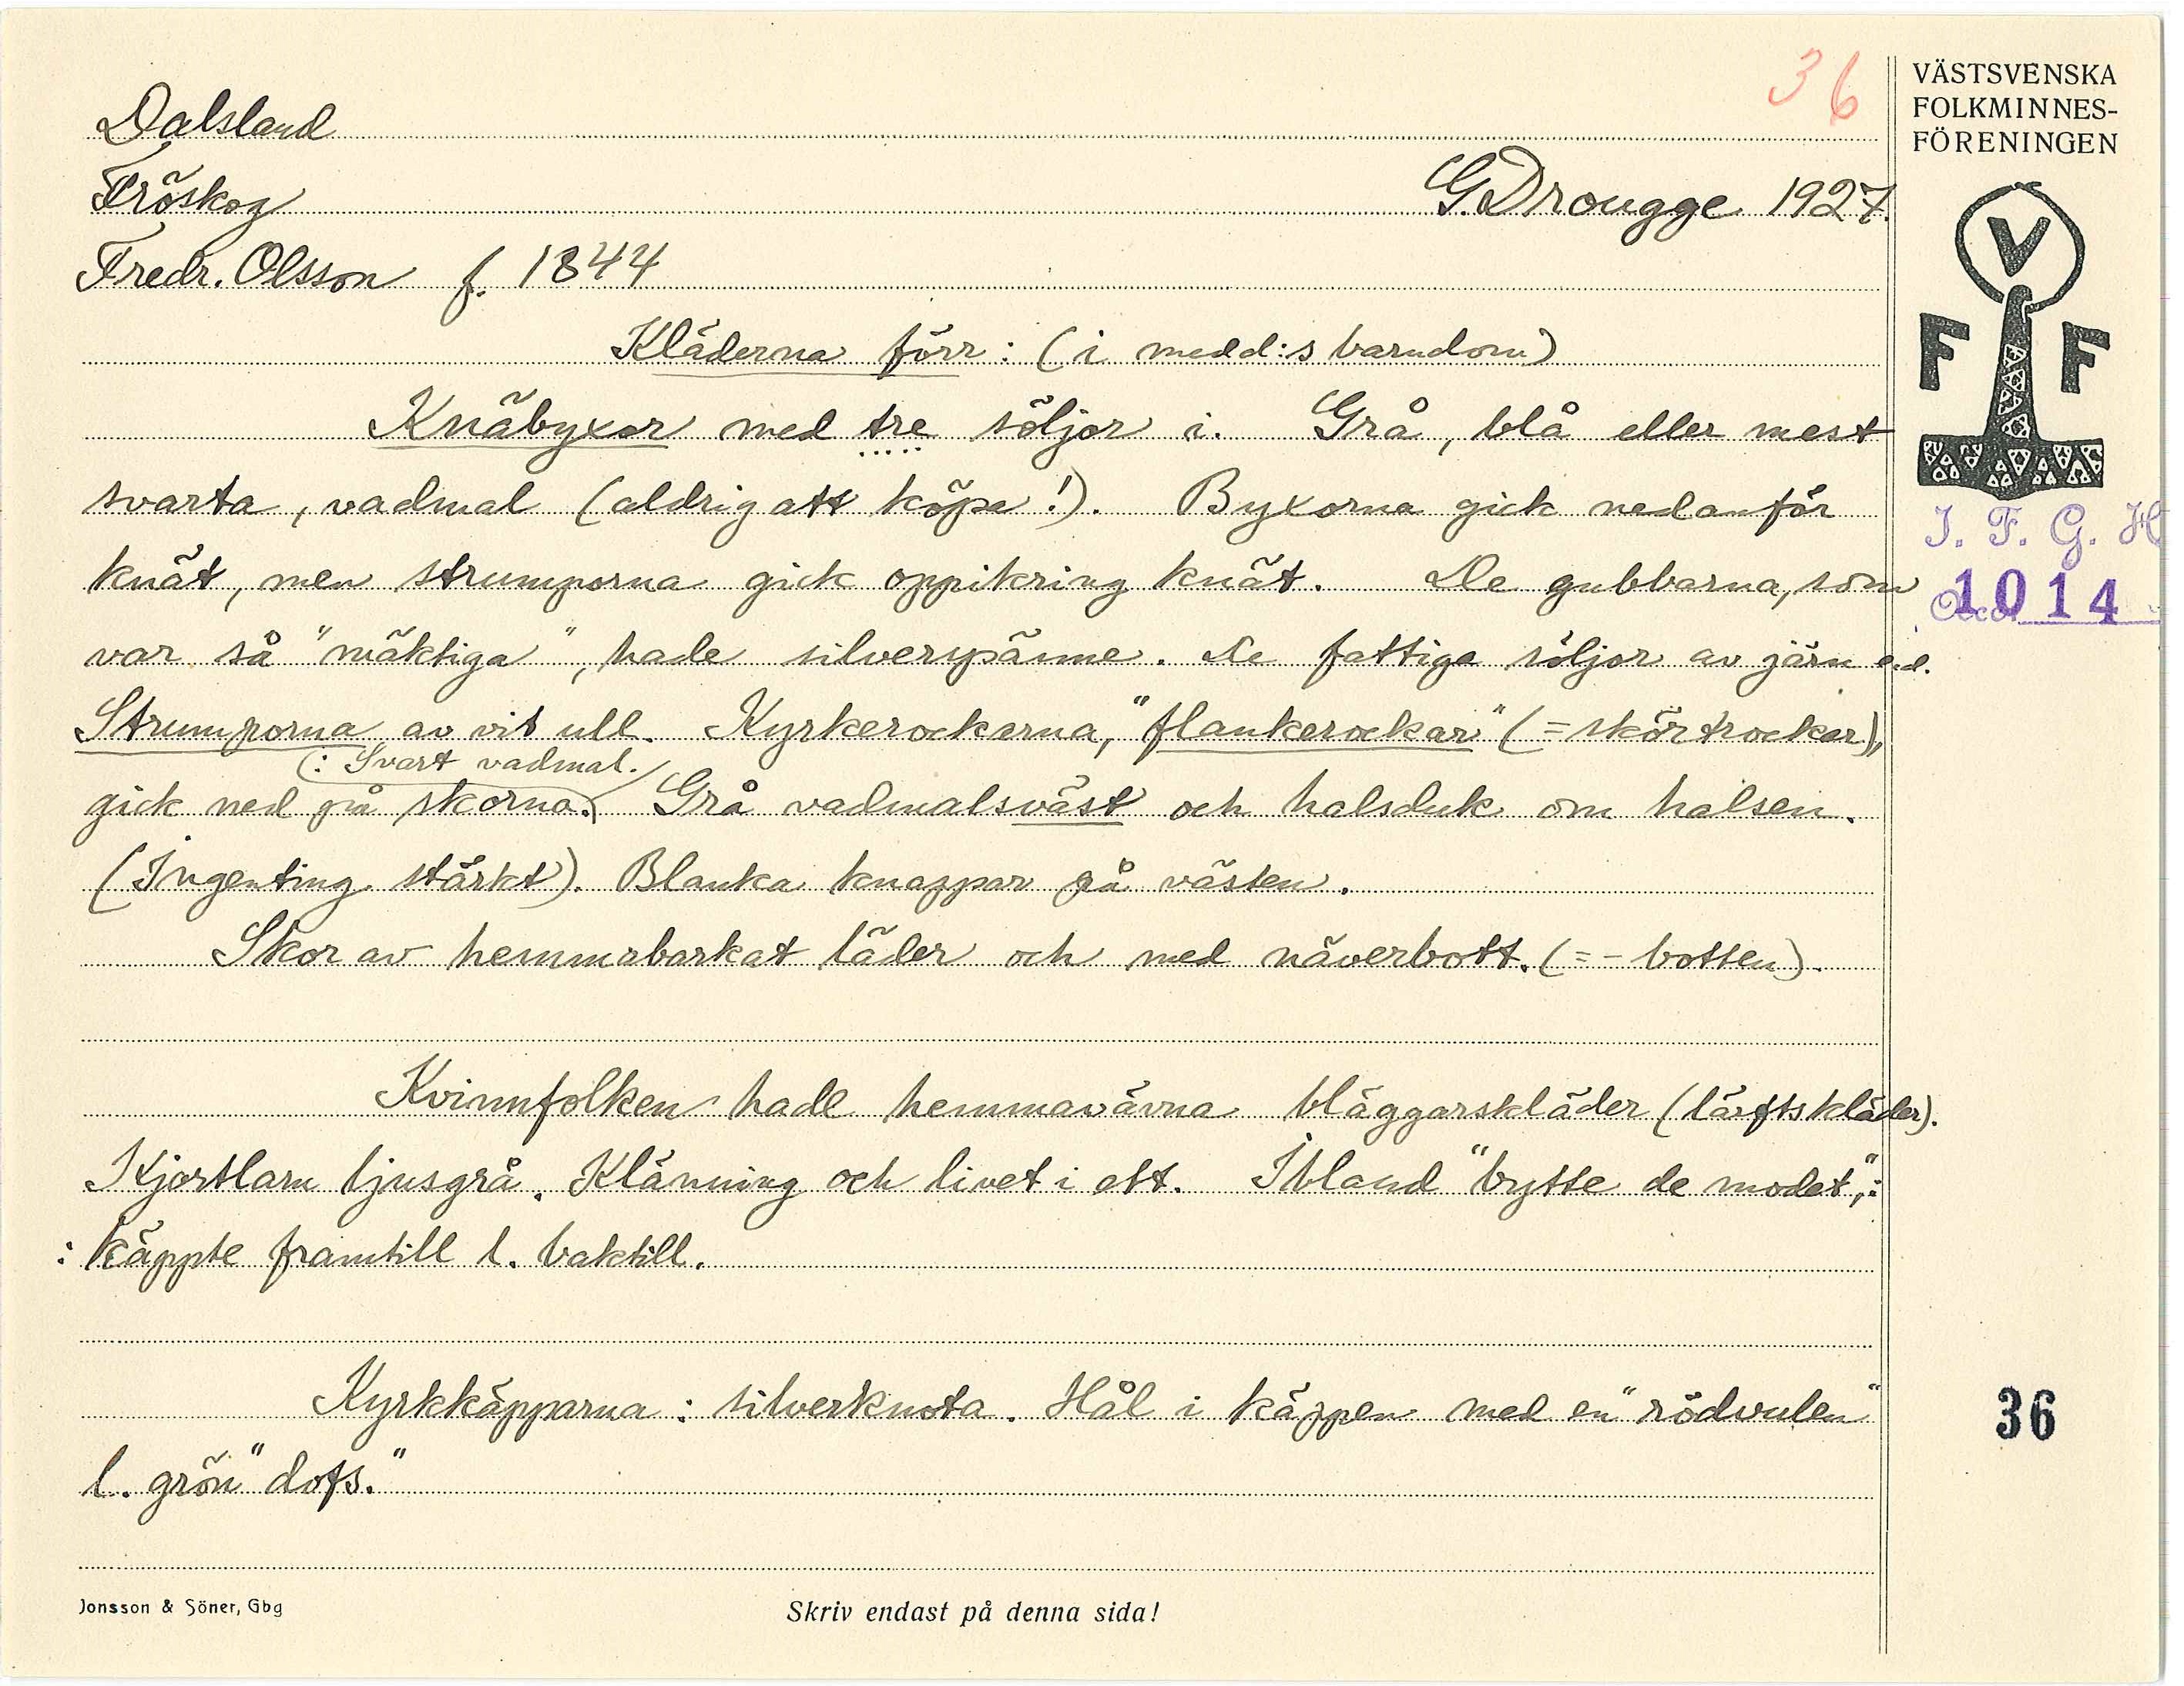 36
Dalsland
Fröskog G. Drougge 1927.
Fredr. Olsson f. 1844
Kläderna förr: (i medd:s barndom)
Knäbyxor med tre söljor i. Grå, blå eller mest
svarta, vadmal (aldrig att köpa!). Byxorna gick nedanför
knät, men strumporna gick oppikring knät. De gubbarna, som
var så "mäktiga", hade silverspänne. De fattiga söljor av järn o.d.
Strumporna av vit ull. Kyrkerockarna, "flankerockar" (= skörtrockar),
(: Svart vadmal.
gick ned på skorna.) Grå vadmalsväst och halsduk om halsen.
(Ingenting stärkt). Blanka knappar på västen.
Skor av hemmabarkat läder och med näverbott. (= - botten).
Kvinnfolken hade hemmavävna bläggarskläder (lärftskläder).
Kjortlarn ljusgrå. Klänning och livet i ett. Ibland "bytte de modet",:
: käppte framtill l. baktill.
Kyrkkäpparna: silverknota. Hål i käppen med en "rödvulen"
l. grön "dofs."
VÄSTSVENSKA
FOLKMINNES-
FÖRENINGEN
V
F F
I. F. G. H
1014
36
Jonsson & Söner, Gbg Skriv endast på denna sida!